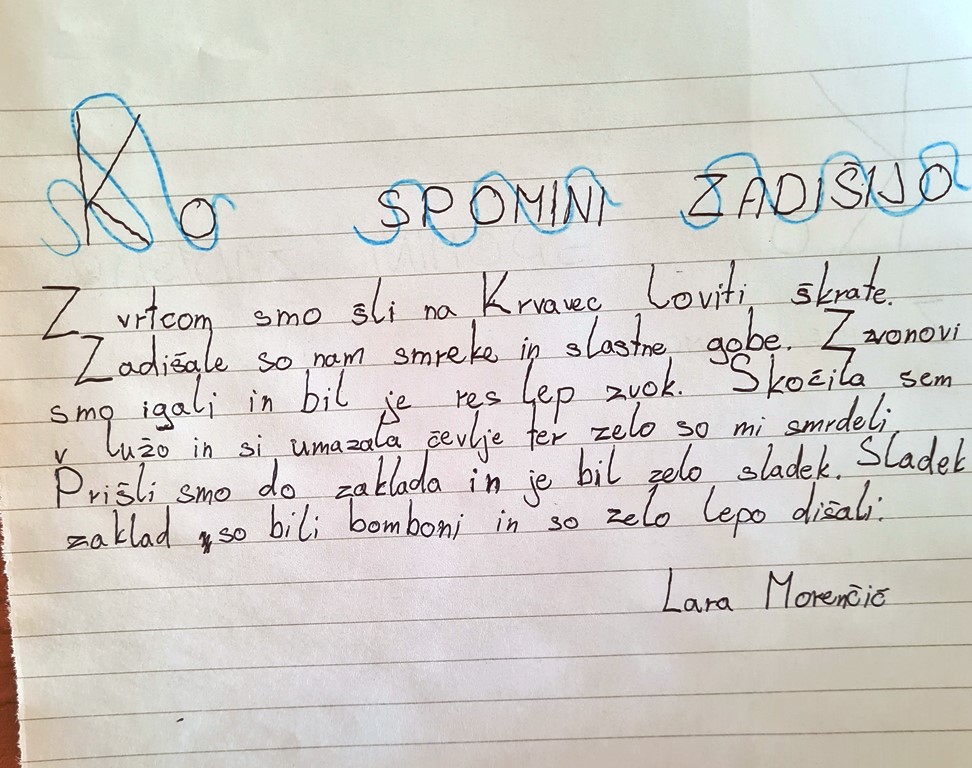 Ko SPOMINI ZADIŠIJO
Z vrtcom smo šli na Krvavec loviti škrate.
Zadišale so nam smreke in slastne gobe. Zvonovi
smo igali in bil je res lep zvok. Skočila sem
v lužo in si umazala čevlje ter zelo so mi smrdeli.
Prišli smo do zaklada in je bil zelo sladek. Sladek
zaklad so bili bomboni in so zelo lepo dišali.
Lara Morenčič